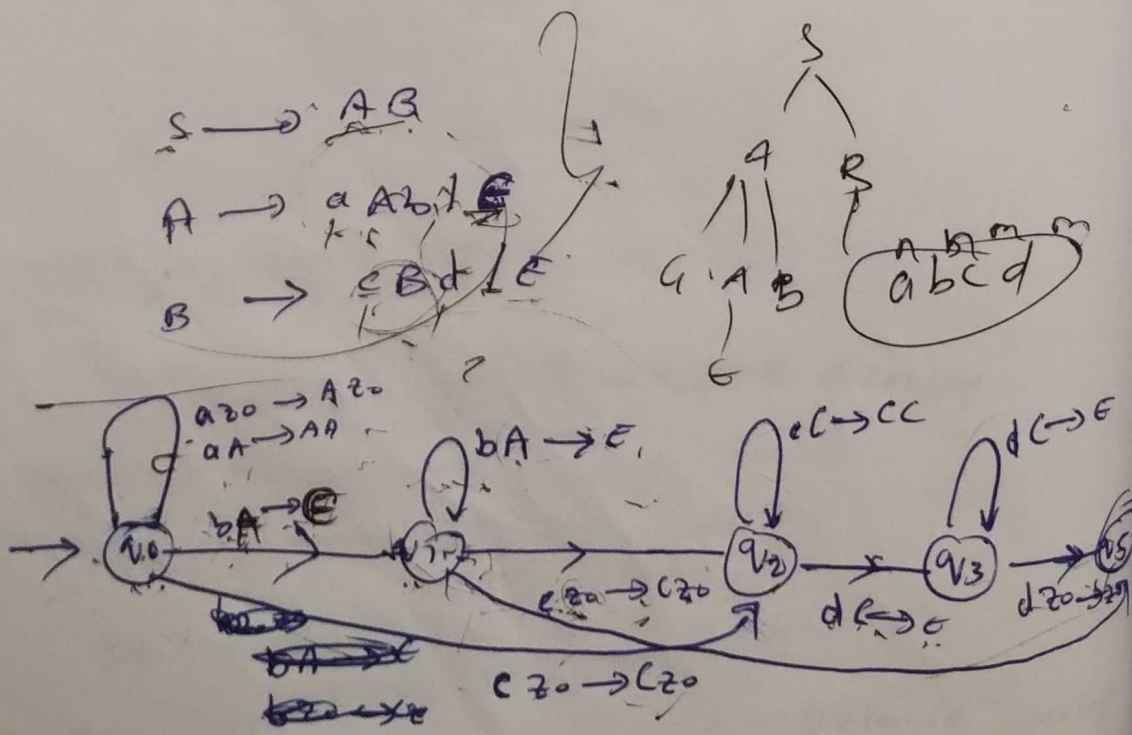 S → AB
A → a A b | E
B → c B d | E
S
A B
a A B
E
n n m m
a b c d
?
a z0 → A z0
a A → A A
b A → E
b A → E
c C → C C
d C → E
q0
q1
q2
q3
c z0 → C z0
d C → E
d z0 →
b A →
c z0 → C z0